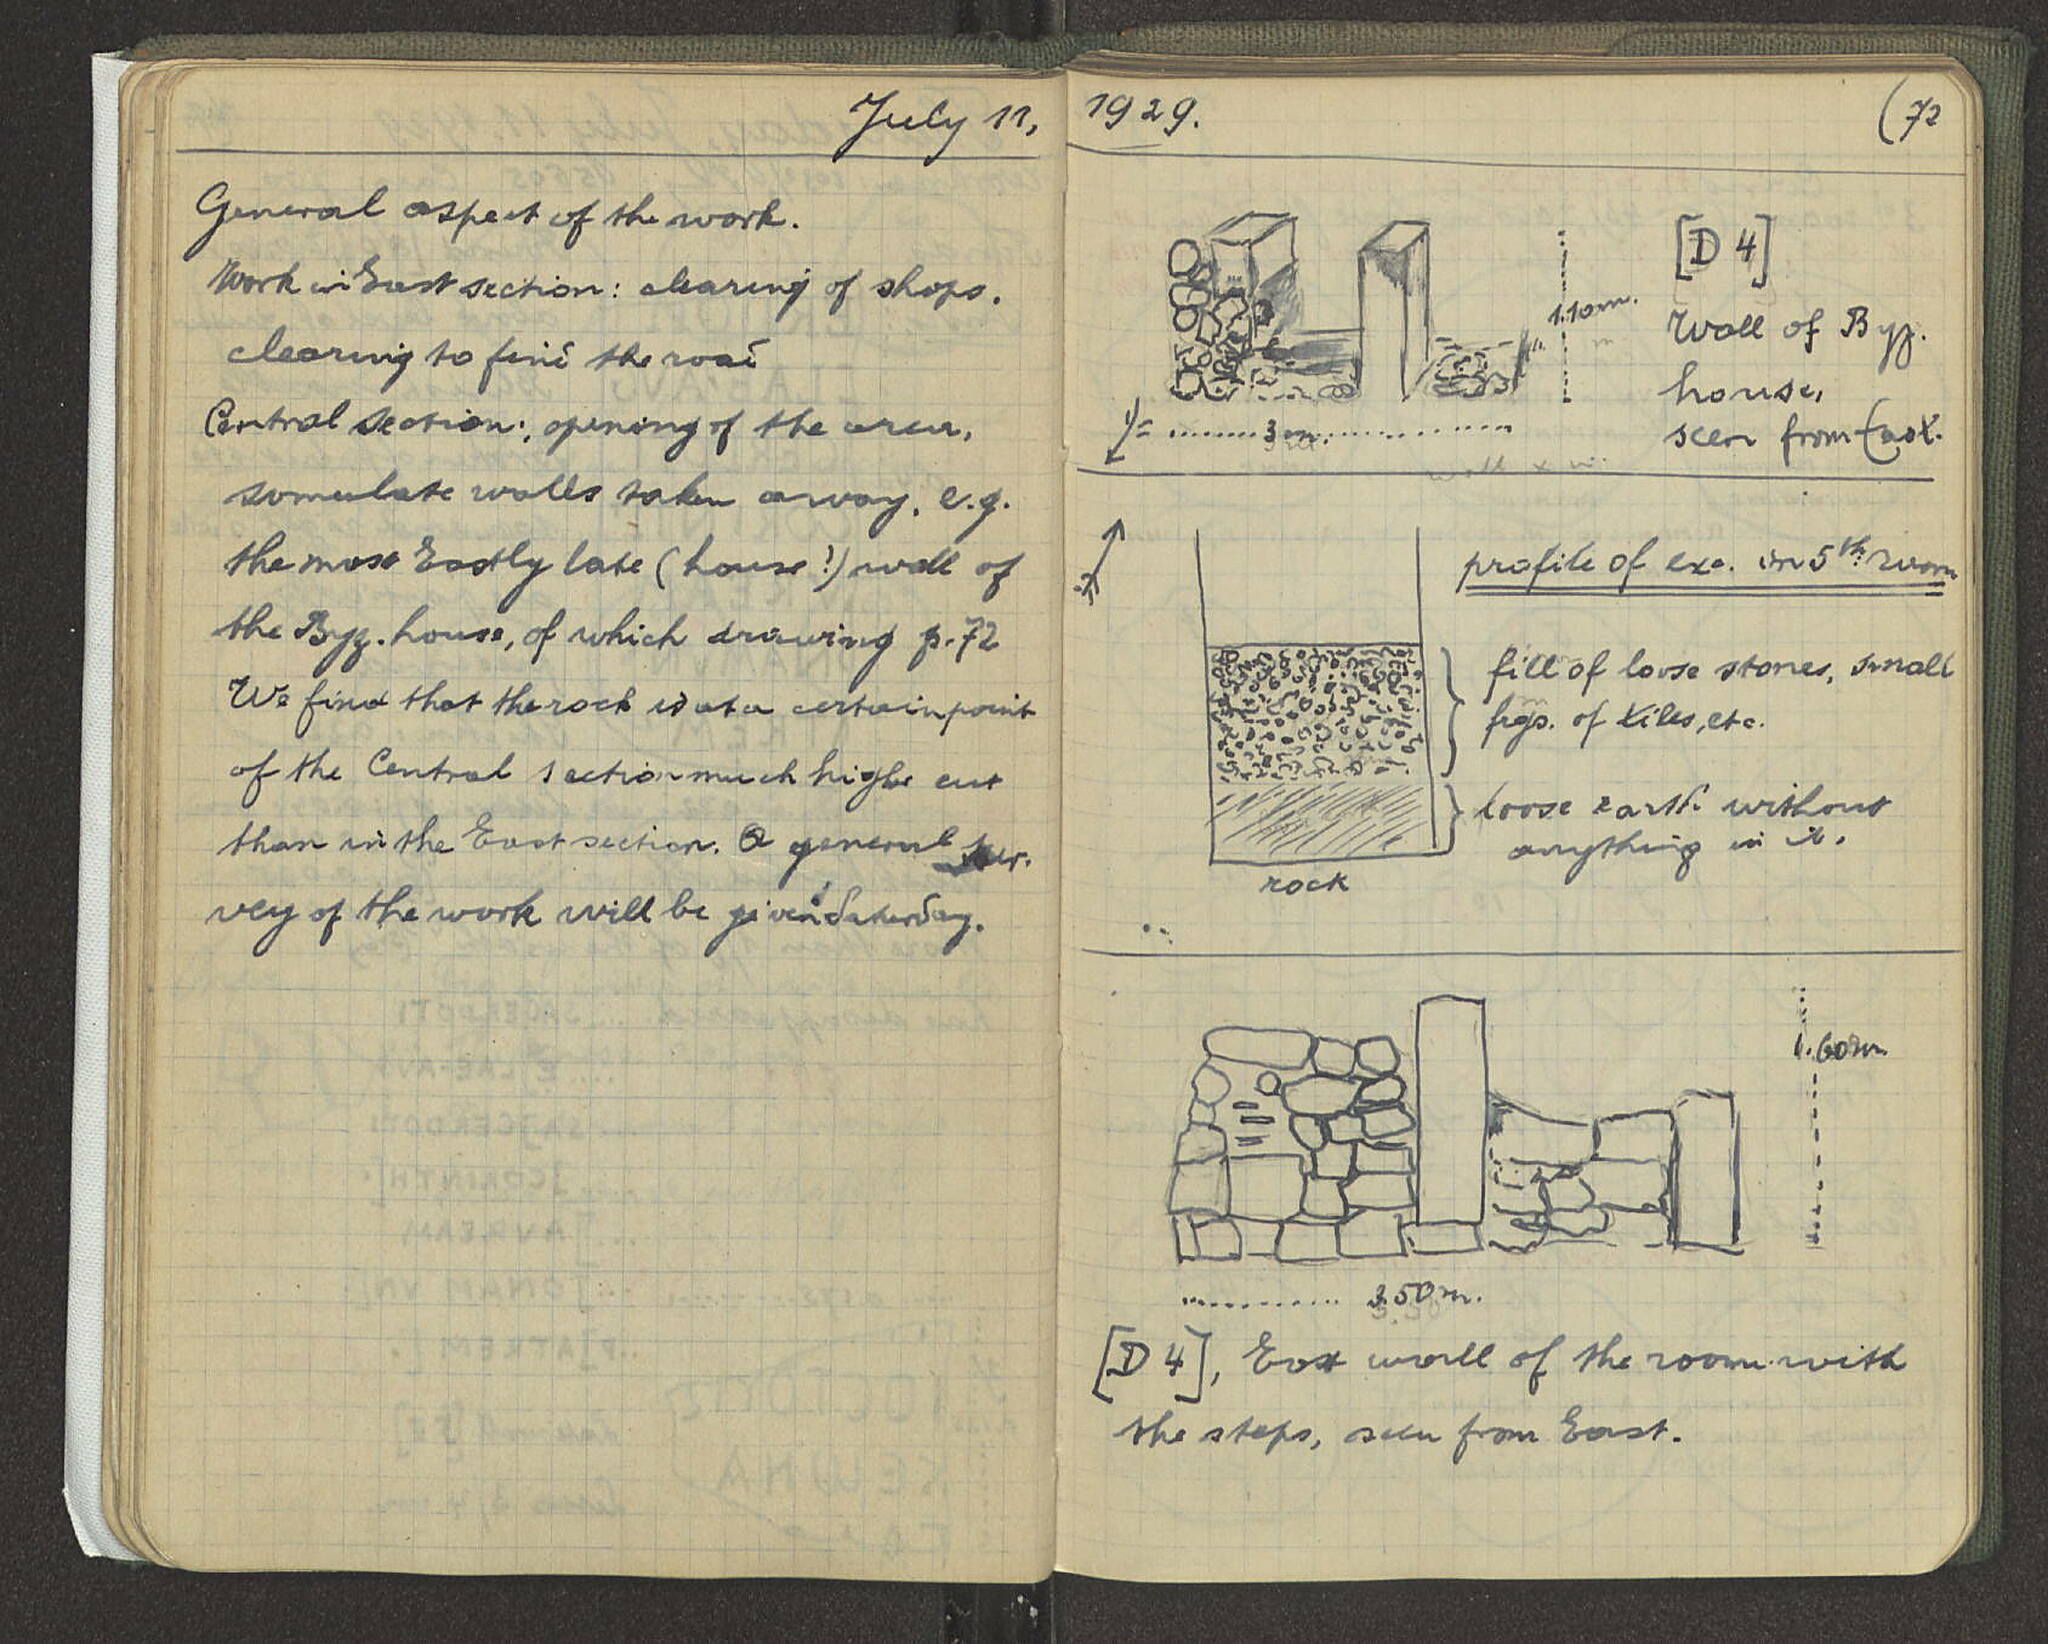 July 11,
General aspect of the work.
Work in East section: clearing of shops.
clearing to find the road
Central section:, opening of the area,
some late walls taken away, e.g.
the most Eastly late (house?) wall of
the Byz. house, of which drawing p. 72
We find that the rock is at a certain point
of the Central section much higher cut
than in the East section. A general sur-
vey of the work will be given Saturday.
1929.
(72
[D 4]
1.10 m.
Wall of Byz.
house,
seen from East.
3 m.
profile of exc. in 5th room
fill of loose stones, small
frgs. of tiles, etc.
loose earth without
anything in it.
rock
1.60 m.
3.50 m.
[D 4], East wall of the room with
the steps, seen from East.